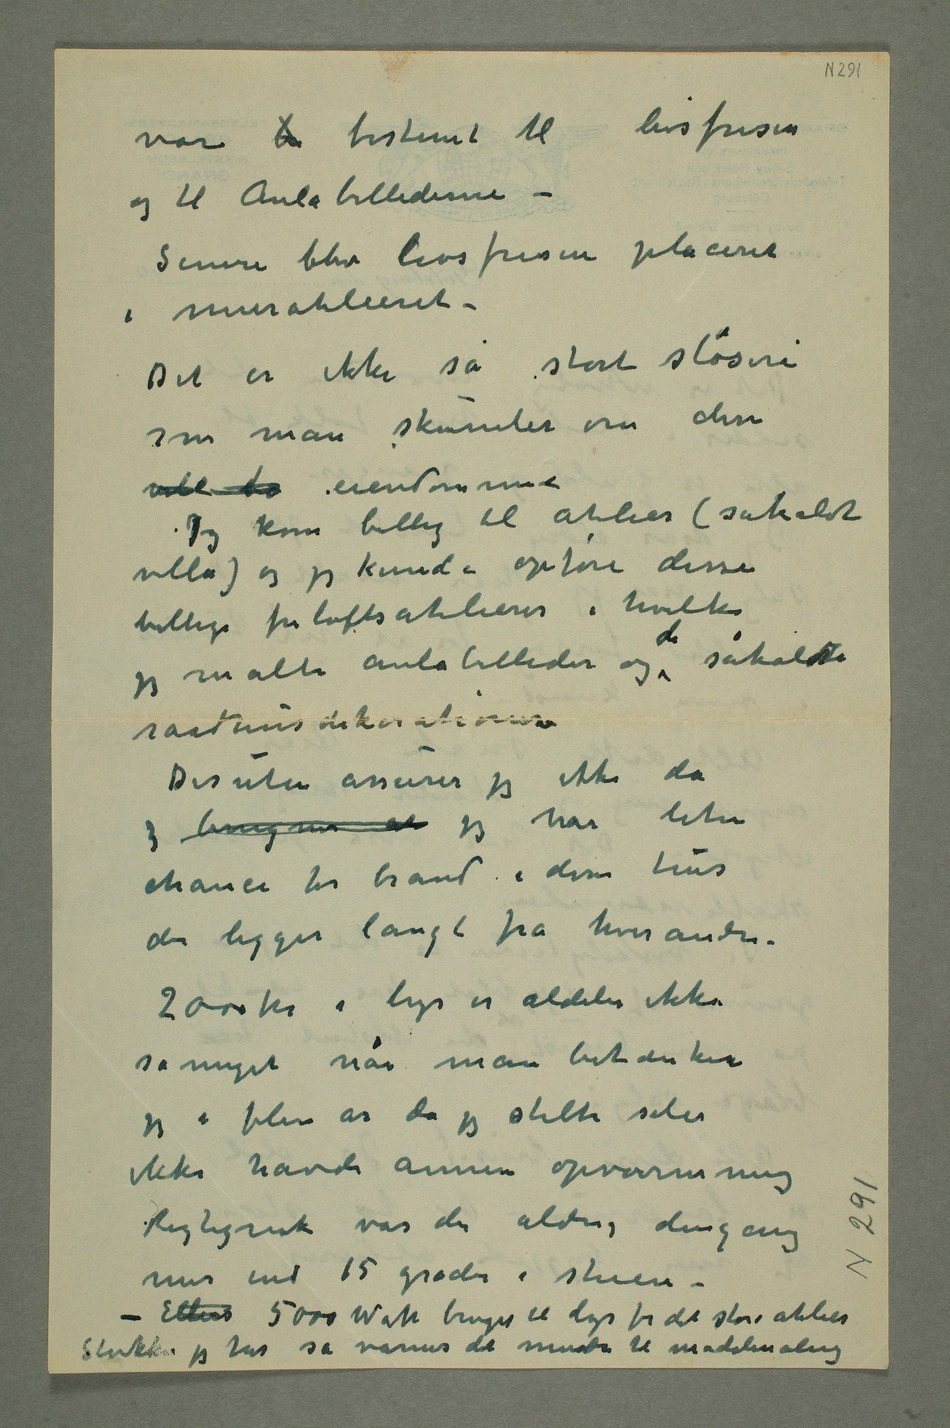 N 291
var bestemt til livsfrisen
og til Aulabillederne –
Senere blev livsfrisen placeret
i muratelieret –
Det er ikke så stort sløseri
som man skumler om disse
eiendomme
Jeg kom billig til atelier (såkaldt
villa) og jeg kunde opføre disse
billige friluftsatelierer i hvilke
jeg malte aulabilleder og de såkaldte
raadhusdekorationer
Desuten assurer jeg ikke da
jeg har liten
chance for brand i disse hus
der ligger langt fra hverandre.
2000 kr i lys er aldeles ikke
så meget når man betænker
jeg i flere år da jeg stelte selv
ikke havde annen opvarmning
Rigtignok var der aldrig dengang
mer end 15 grader i stuen –
– Ellers 5000 Watt bruges til lys for det store atelier
jeg har så varmes det mindre til modelmaling
N 291